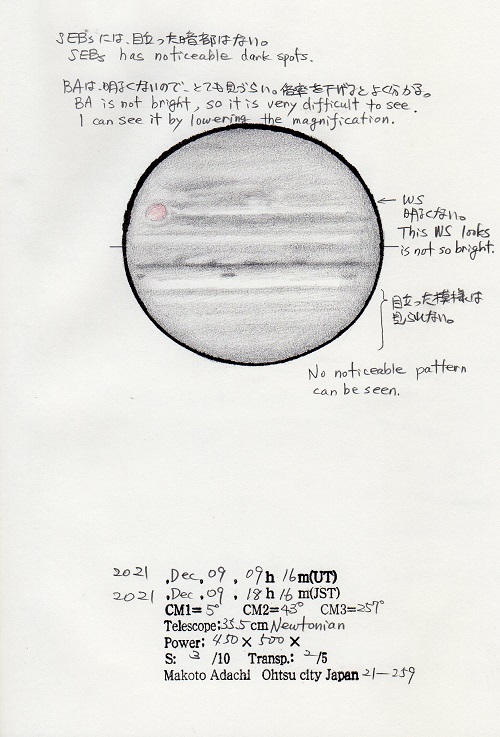 SEBsには、目立った暗部はない。
SEBs has noticeable dark spots.
BAは、明るくないので、とても見づらい。倍率を下げるとよく分かる。
BA is not bright, so it is very difficult to see.
I can see it by lowering the magnification.
← WS
明るくない。
This WS looks
is not so bright.
目立った模様は
見られない。
No noticeable pattern
can be seen.
2021 ,Dec, 09 , 09h 16m(UT)
2021 ,Dec, 09 , 18h 16m(JST)
CM1= 5° CM2= 43° CM3= 257°
Telescope: 35.5cm Newtonian
Power; 450× 500×
S: 3 /10 Transp.: 2/5
Makoto Adachi Ohtsu city Japan 21-259